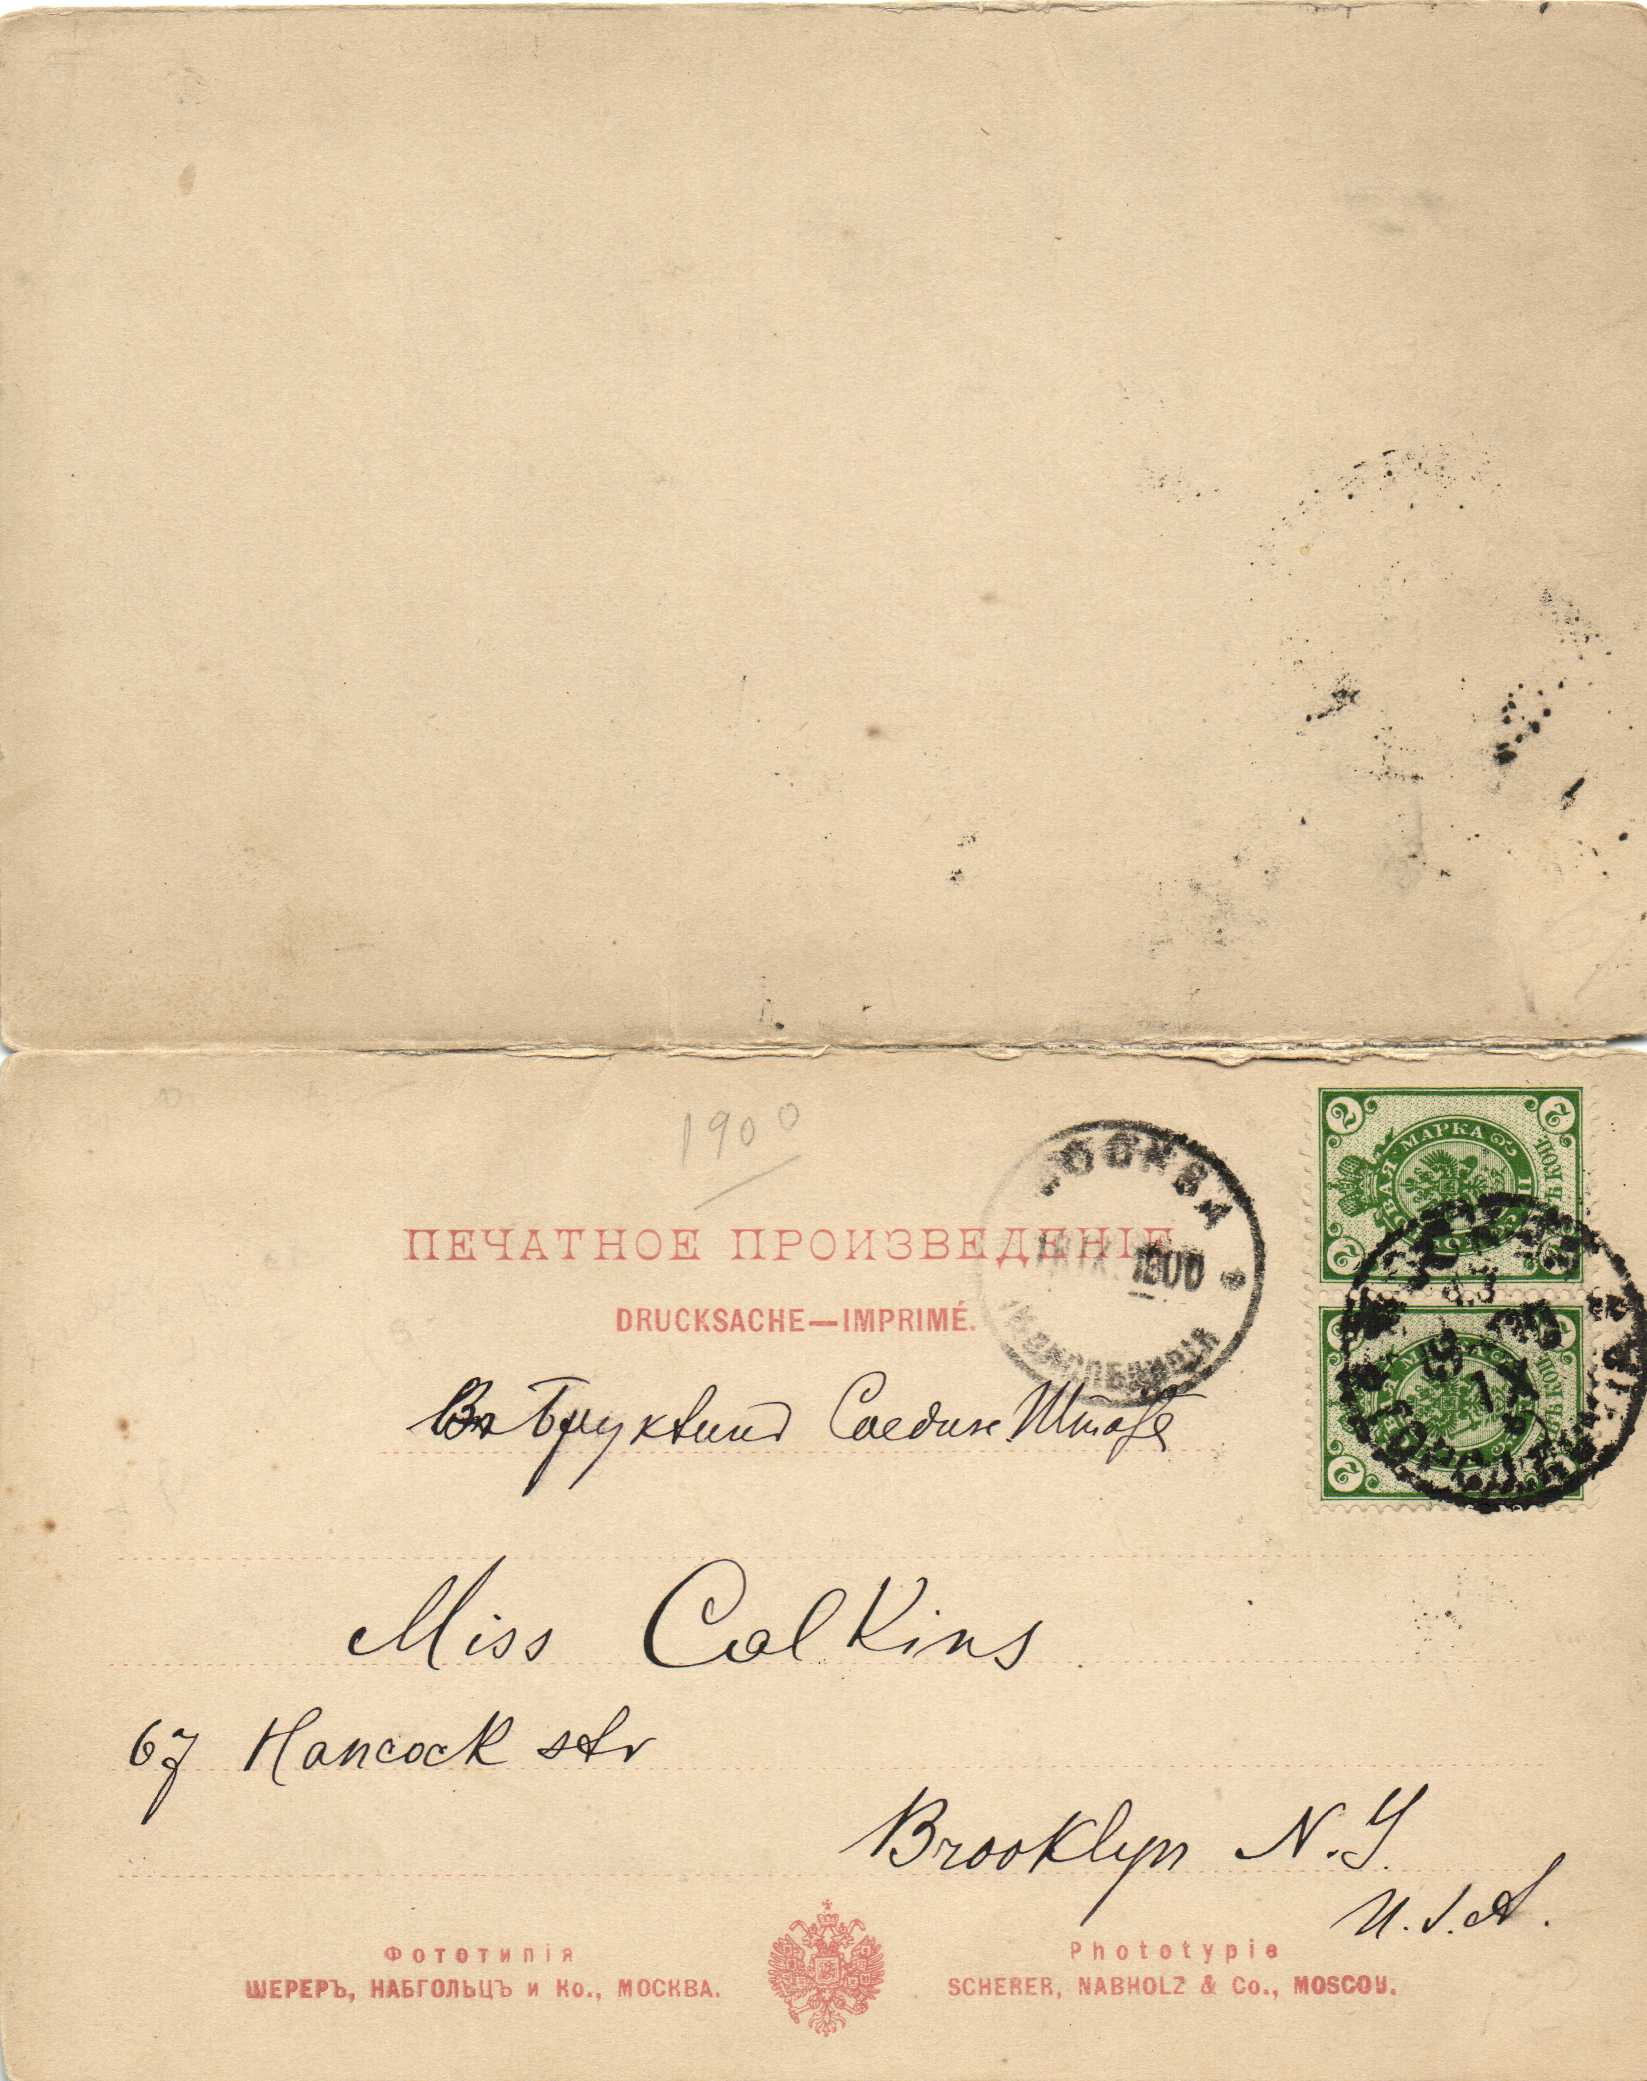 1900
ПЕЧАТНОЕ ПРОИЗВЕДЕНІЕ
DRUCKSACHE—IMPRIMÉ.
МОСКВА
1900
2 2
МАРКА
2 2
Въ Бруклинъ Соедин Штаты
Miss Calkins
67 Hancock str
Brooklyn N.Y.
U.S.A.
Фототипія
ШЕРЕРЪ, НАБГОЛЬЦЪ и Ко., МОСКВА.
Phototypie
SCHERER, NABHOLZ & Co., MOSCOU.